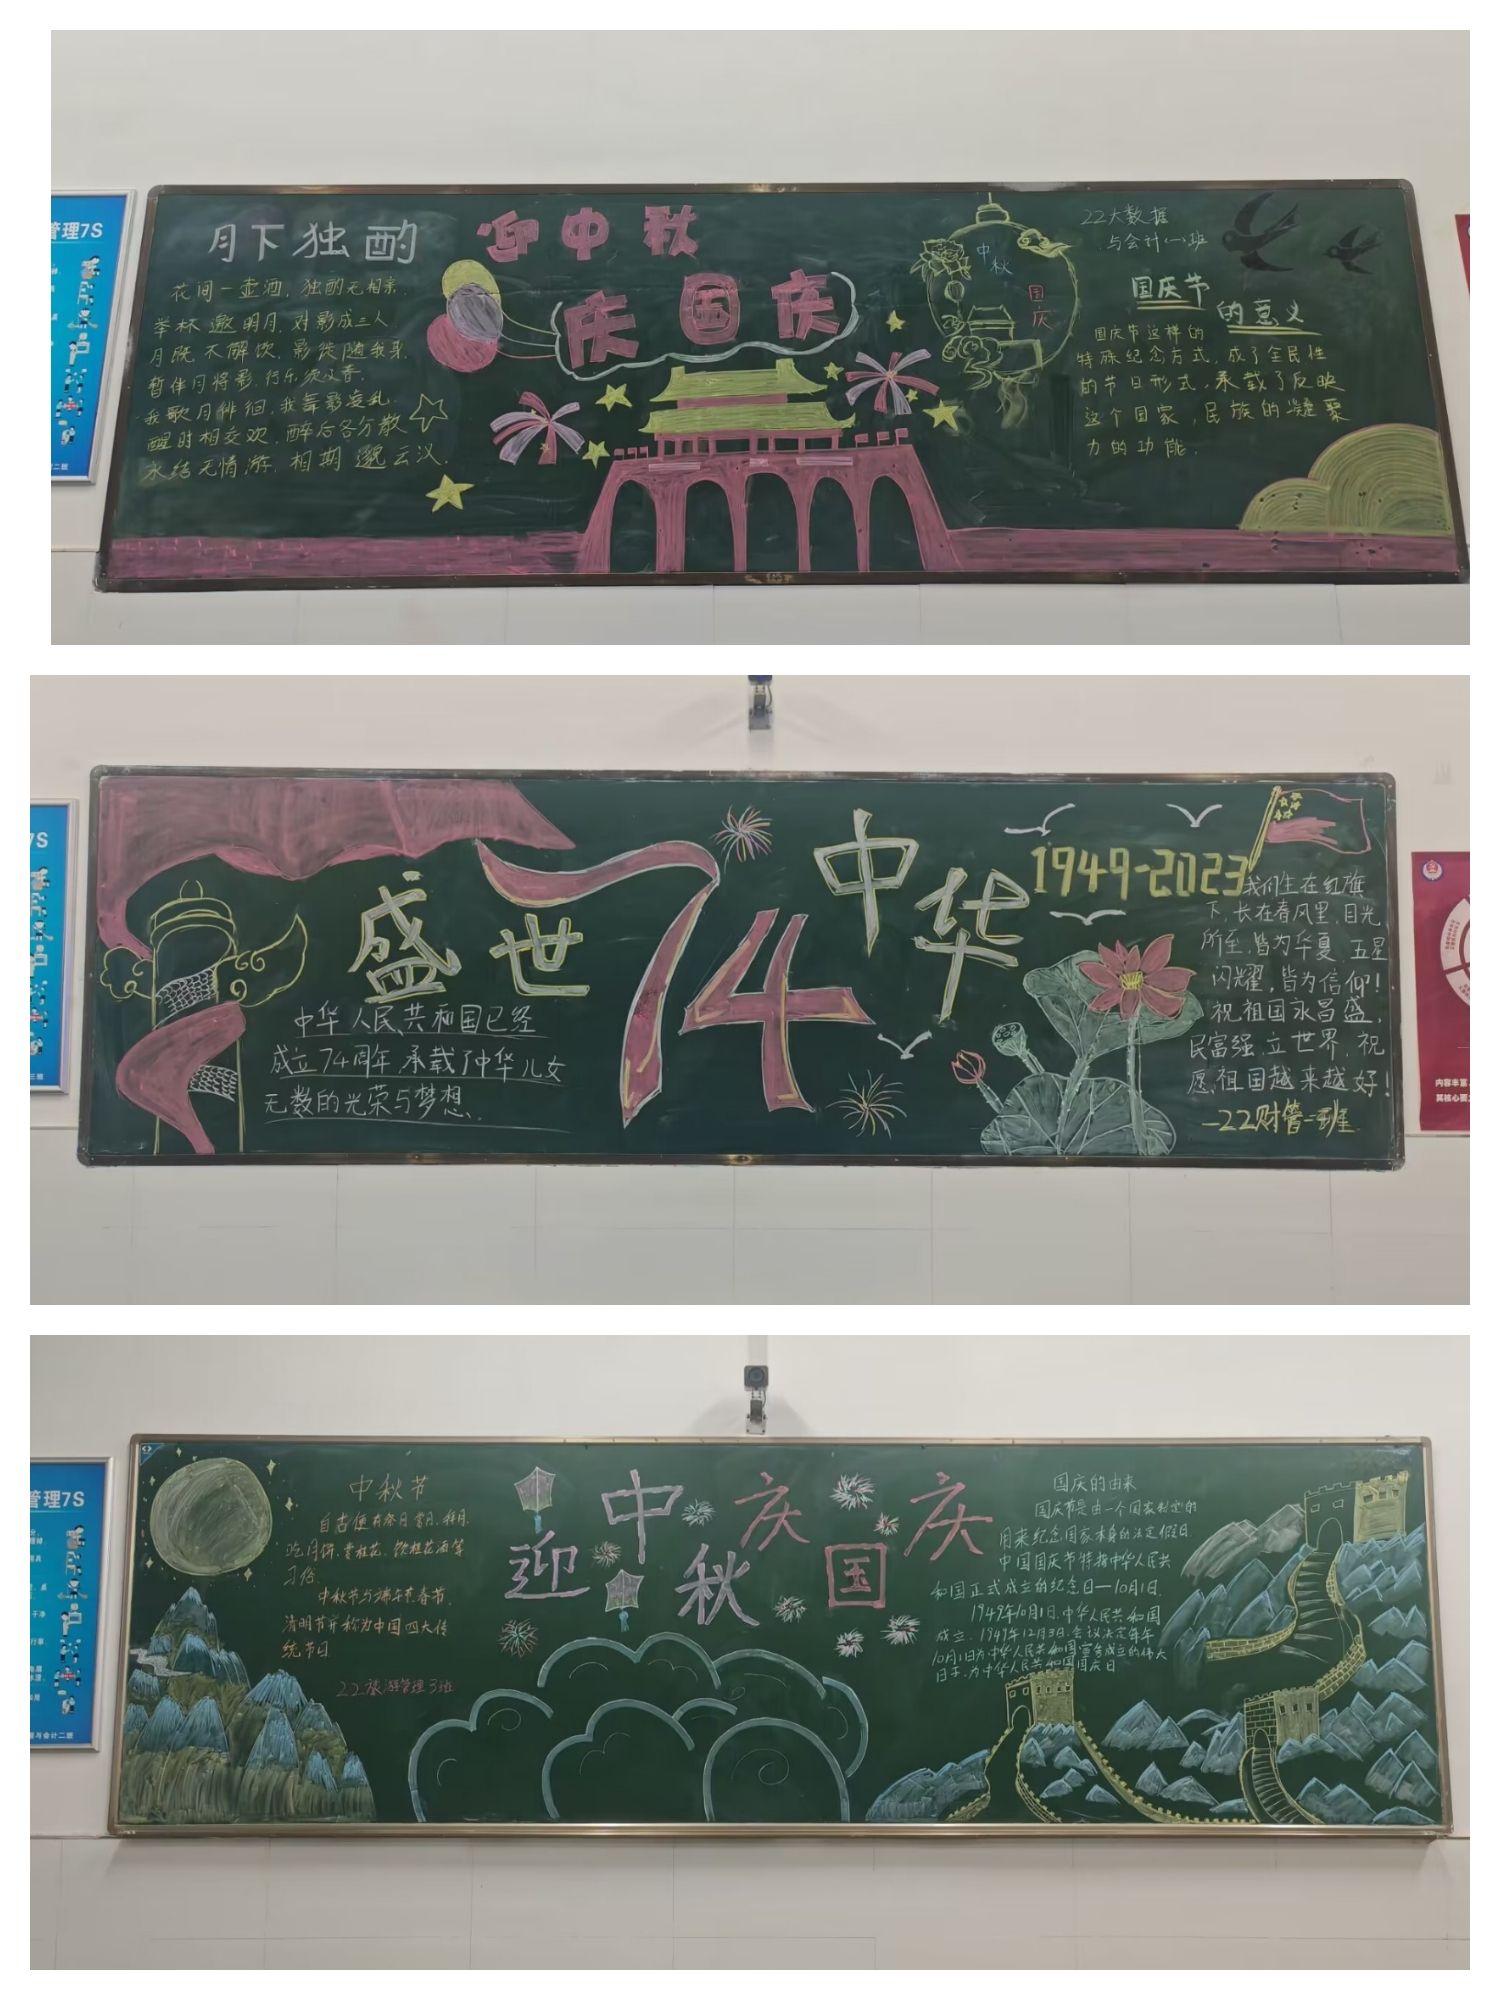 管理7S
月下独酌
花间一壶酒，独酌无相亲.
举杯邀明月，对影成三人
月既不解饮，影徒随我身.
暂伴月将影，行乐须及春.
我歌月徘徊，我舞影凌乱.
醒时相交欢，醉后各分散
永结无情游，相期邈云汉.
迎中秋
庆国庆
中秋
国庆
22大数据
与会计(一)班
国庆节
的意义
国庆节这样的
特殊纪念方式，成了全民性
的节日形式，承载了反映
这个国家，民族的凝聚
力的功能.
7S
盛世74中华
中华人民共和国已经
成立74周年,承载了中华儿女
无数的光荣与梦想.
1949-2023
我们生在红旗
下,长在春风里,目光
所至,皆为华夏,五星
闪耀,皆为信仰!
祝祖国永昌盛,
民富强,立世界,祝
愿,祖国越来越好!
—22财管一班
内容丰富
其核心要
管理7S
与会计二班
中秋节
自古便有祭月、赏月、拜月、
吃月饼、赏桂花、饮桂花酒等
习俗.
中秋节与端午节、春节、
清明节并称为中国四大传
统节日
22旅游管理3班
迎中秋庆国庆
国庆的由来
国庆节是由一个国家制定的
用来纪念国家本身的法定假日.
中国国庆节特指中华人民共
和国正式成立的纪念日—10月1日.
1949年10月1日,中华人民共和国
成立,1949年12月3日,会议决定每年
10月1日为中华人民共和国宣告成立的伟大
日子,为中华人民共和国国庆日